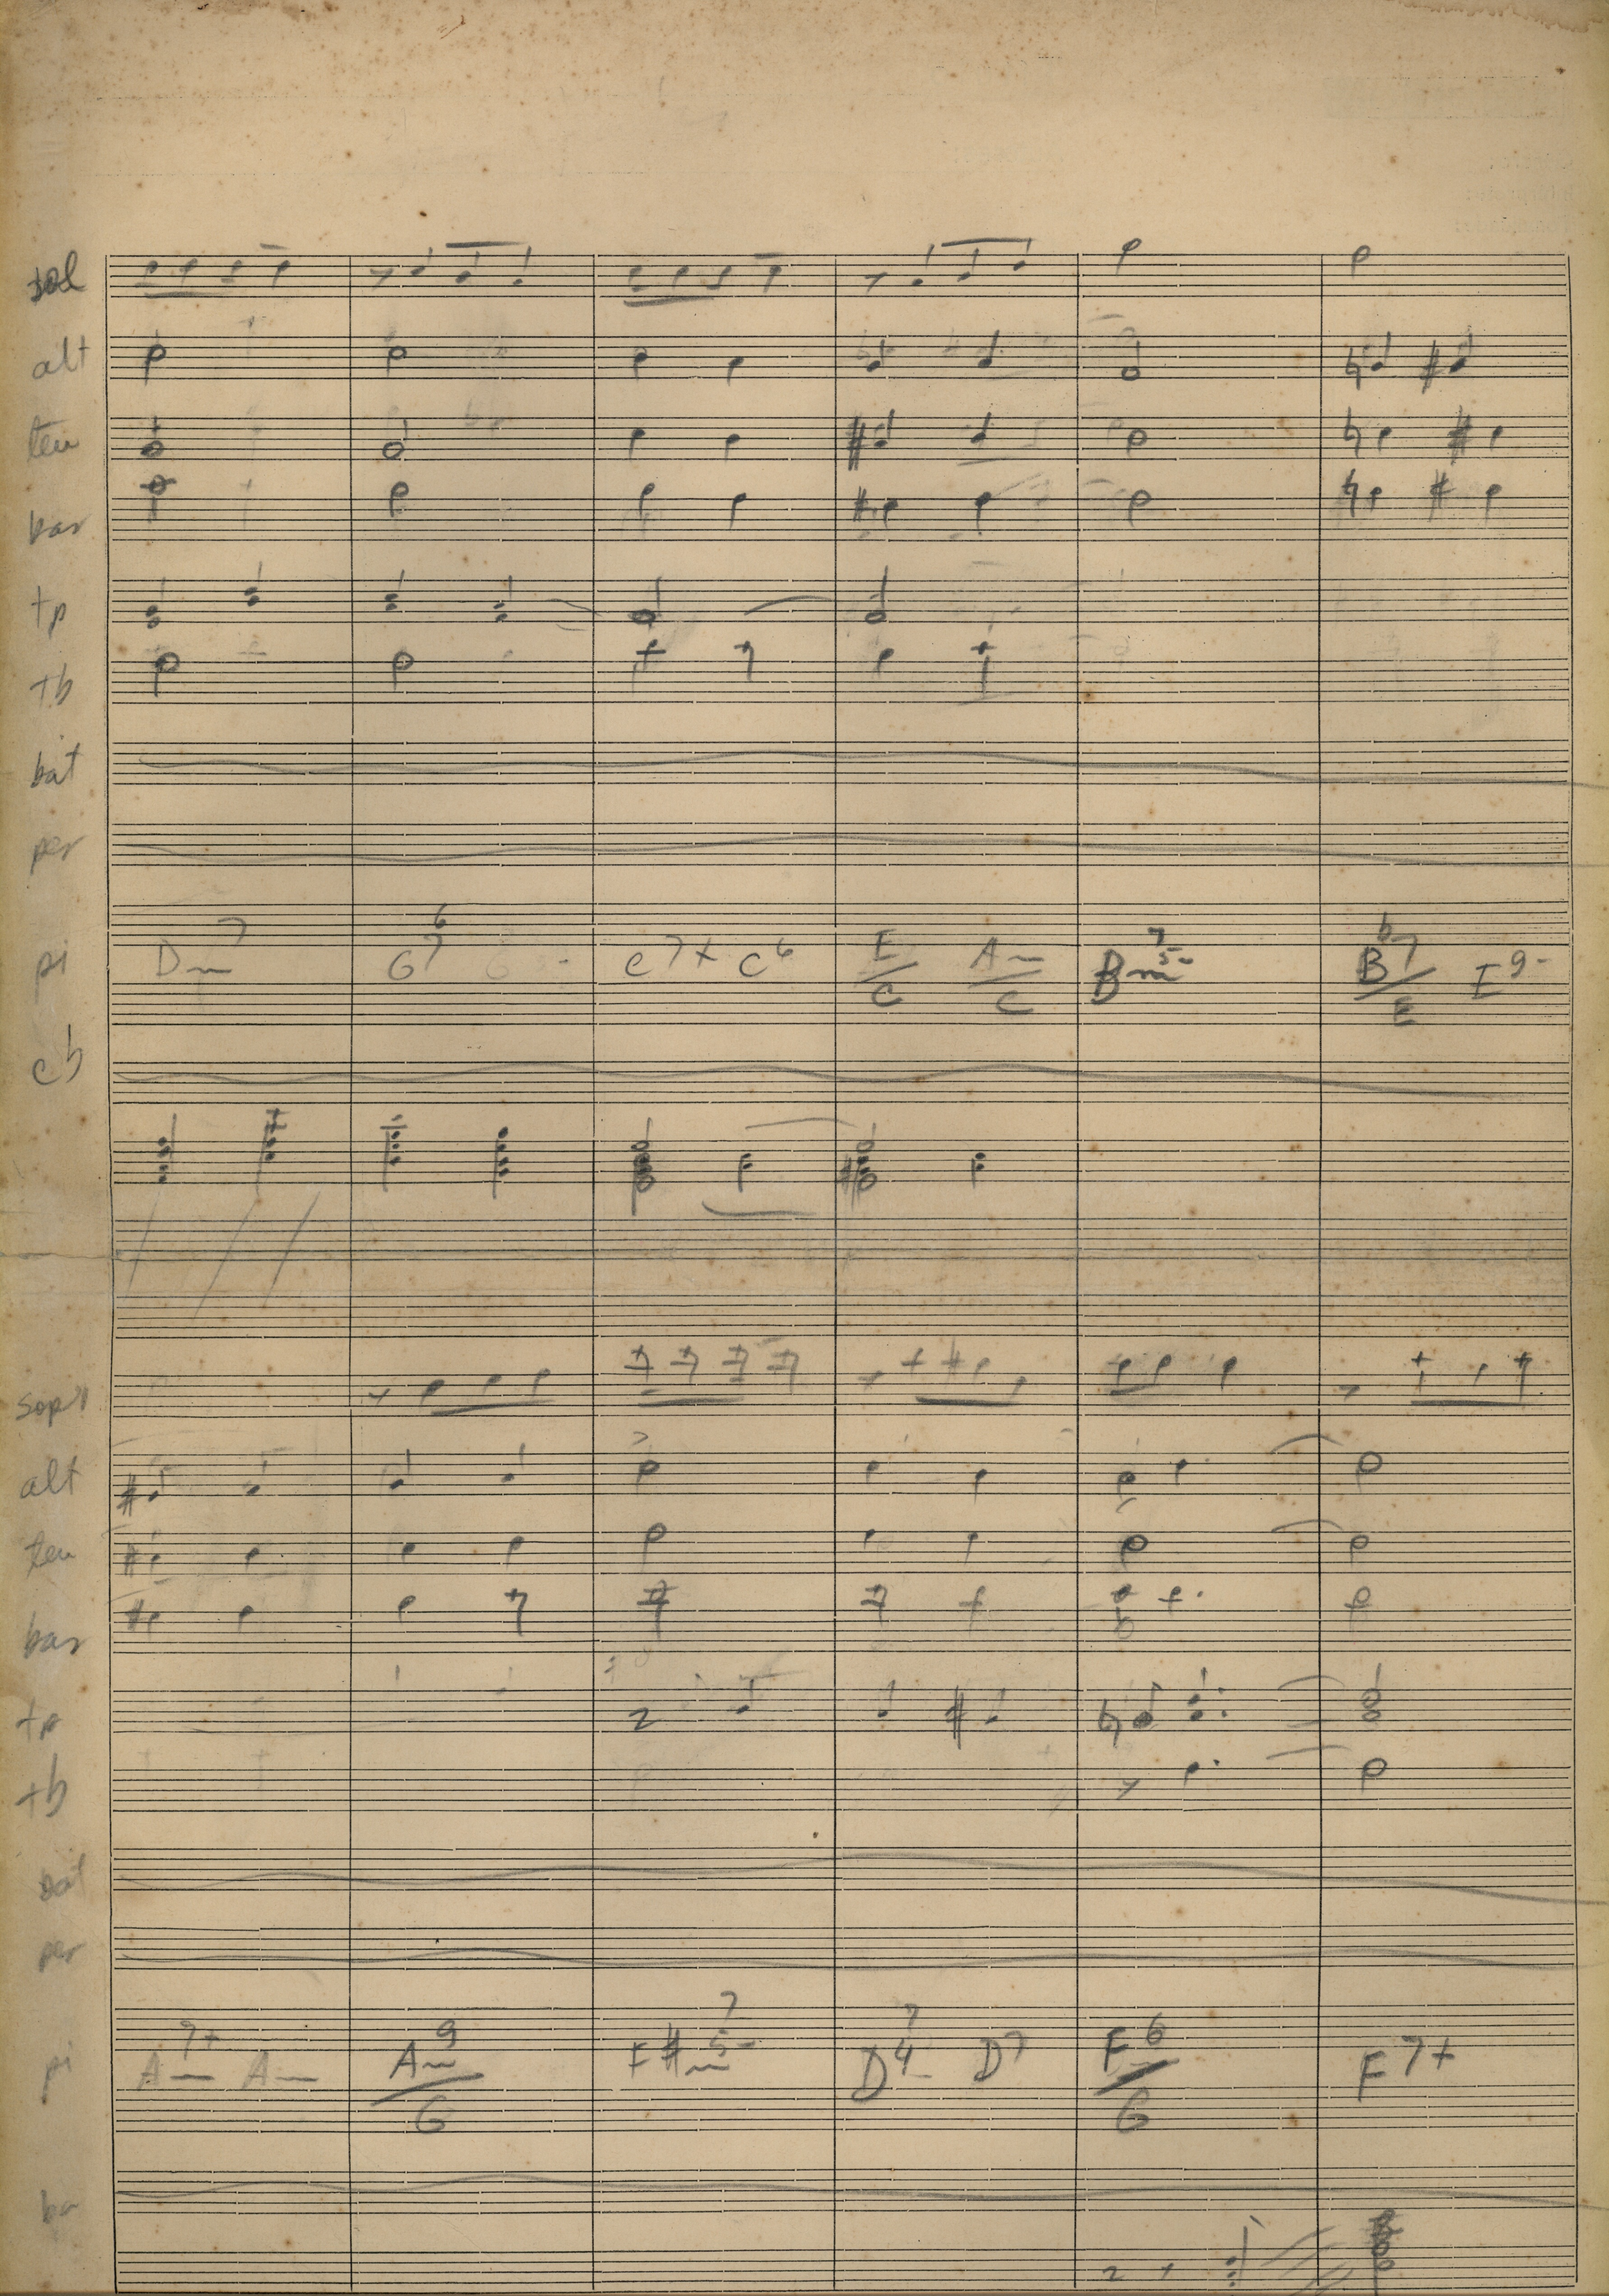 sol
alt
ten
bar
tp
tb
bat
per
pi Dm7 G7 6 C7+ C6 E/C Am/C Bm7 5- B♭7/E E9-
cb
sopr
alt
ten
bar
tp
tb
bat
per
pi Am7+ Am Am9/G F#m7 5- D7 4 D7 F6/G F7+